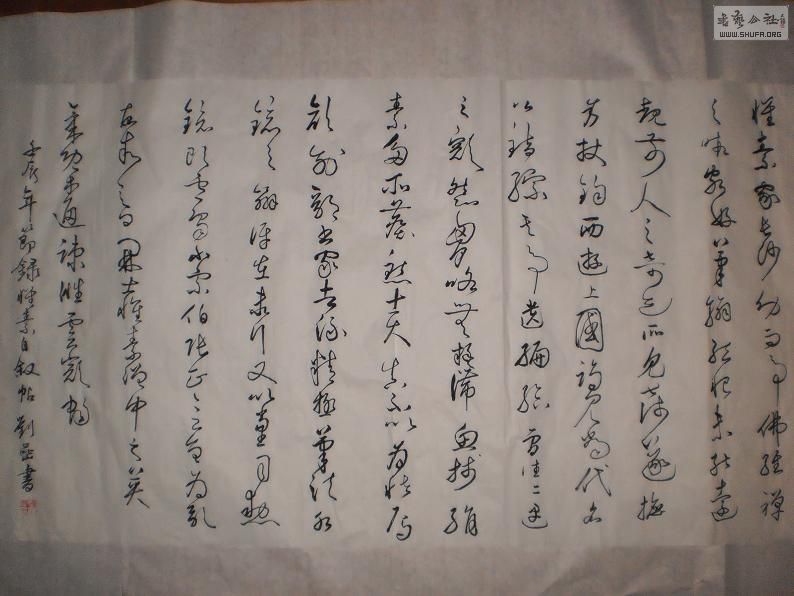 書藝公社
WWW.SHUFA.ORG
懷素家長沙幼而事佛經禪
之暇頗好筆翰然恨未能遠
覩前人之奇迹所見甚淺遂擔
笈杖錫西遊上國謁見當代名
公錯綜其事遺編絕簡往往遇
之豁然心胸略無疑滯魚牋絹
素多所塵點士大夫不以為怪焉
顏刑部書家者流精極筆法水
鏡之辨許在末行又以尚書司勳
郎盧象小宗伯張正言曾為歌
詩故敘之曰開士懷素僧中之英
氣概通疎性靈豁暢
壬辰年節錄懷素自敘帖劉書